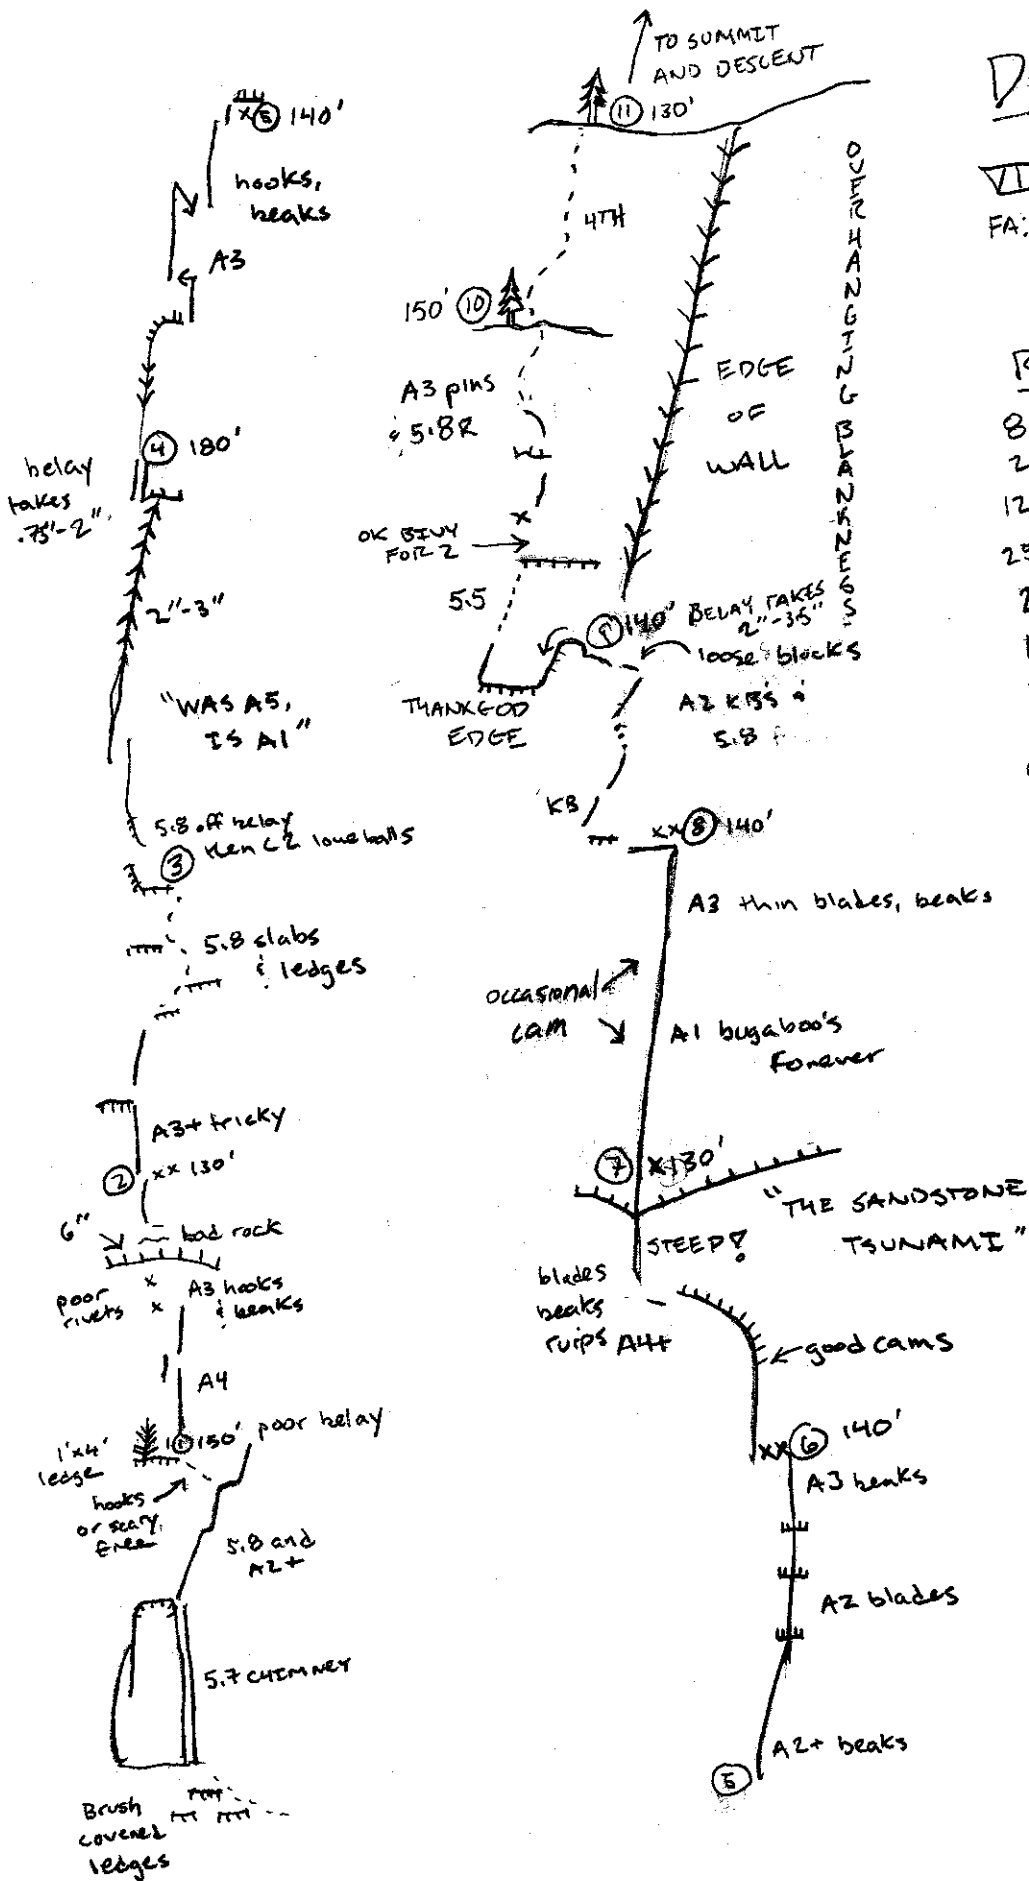 x (5) 140'
hooks,
beaks
A3
(4) 180'
belay
takes
.75"-2"
2"-3"
"WAS A5,
IS A1"
5.8 off belay
then C2 lowe balls
(3)
5.8 slabs
& ledges
A3+ tricky
(2) xx 130'
6"
bad rock
poor
rivets
x
x
A3 hooks
& beaks
A4
1'x4'
ledge
(1) 150' poor belay
hooks
or scary
free
5.8 and
A2+
5.7 CHIMNEY
Brush
covered
ledges
TO SUMMIT
AND DESCENT
(11) 130'
4TH
150' (10)
A3 pins
& 5.8R
x
OK BIVY
FOR 2
5.5
EDGE
OF
WALL
OVERHANGTING BLANKNESS
(9) 140' BELAY TAKES
2"-3.5"
loose blocks
THANK GOD
EDGE
A2 KB'S &
5.8
KB
xx (8) 140'
A3 thin blades, beaks
occasional
cam
A1 bugaboo's
Forever
(7) x 130'
"THE SANDSTONE
TSUNAMI"
STEEP!
blades
beaks
rurps A4+
good cams
xx (6) 140'
A3 beaks
A2 blades
A2+ beaks
(5)
D
VI
FA:
R
8
2
12
25
2